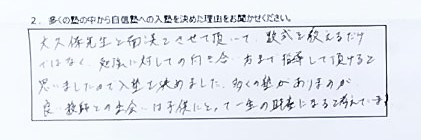 2. 多くの塾の中から自信塾への入塾を決めた理由をお聞かせください。
大久保先生と面談させて頂いて、数式を教えるだけ
ではなく、勉強に対しての向き合い方まで指導して頂けると
思いましたので入塾を決めました。多くの塾がありますが
良い教師との出会いは子供にとって一生の財産になると考えています